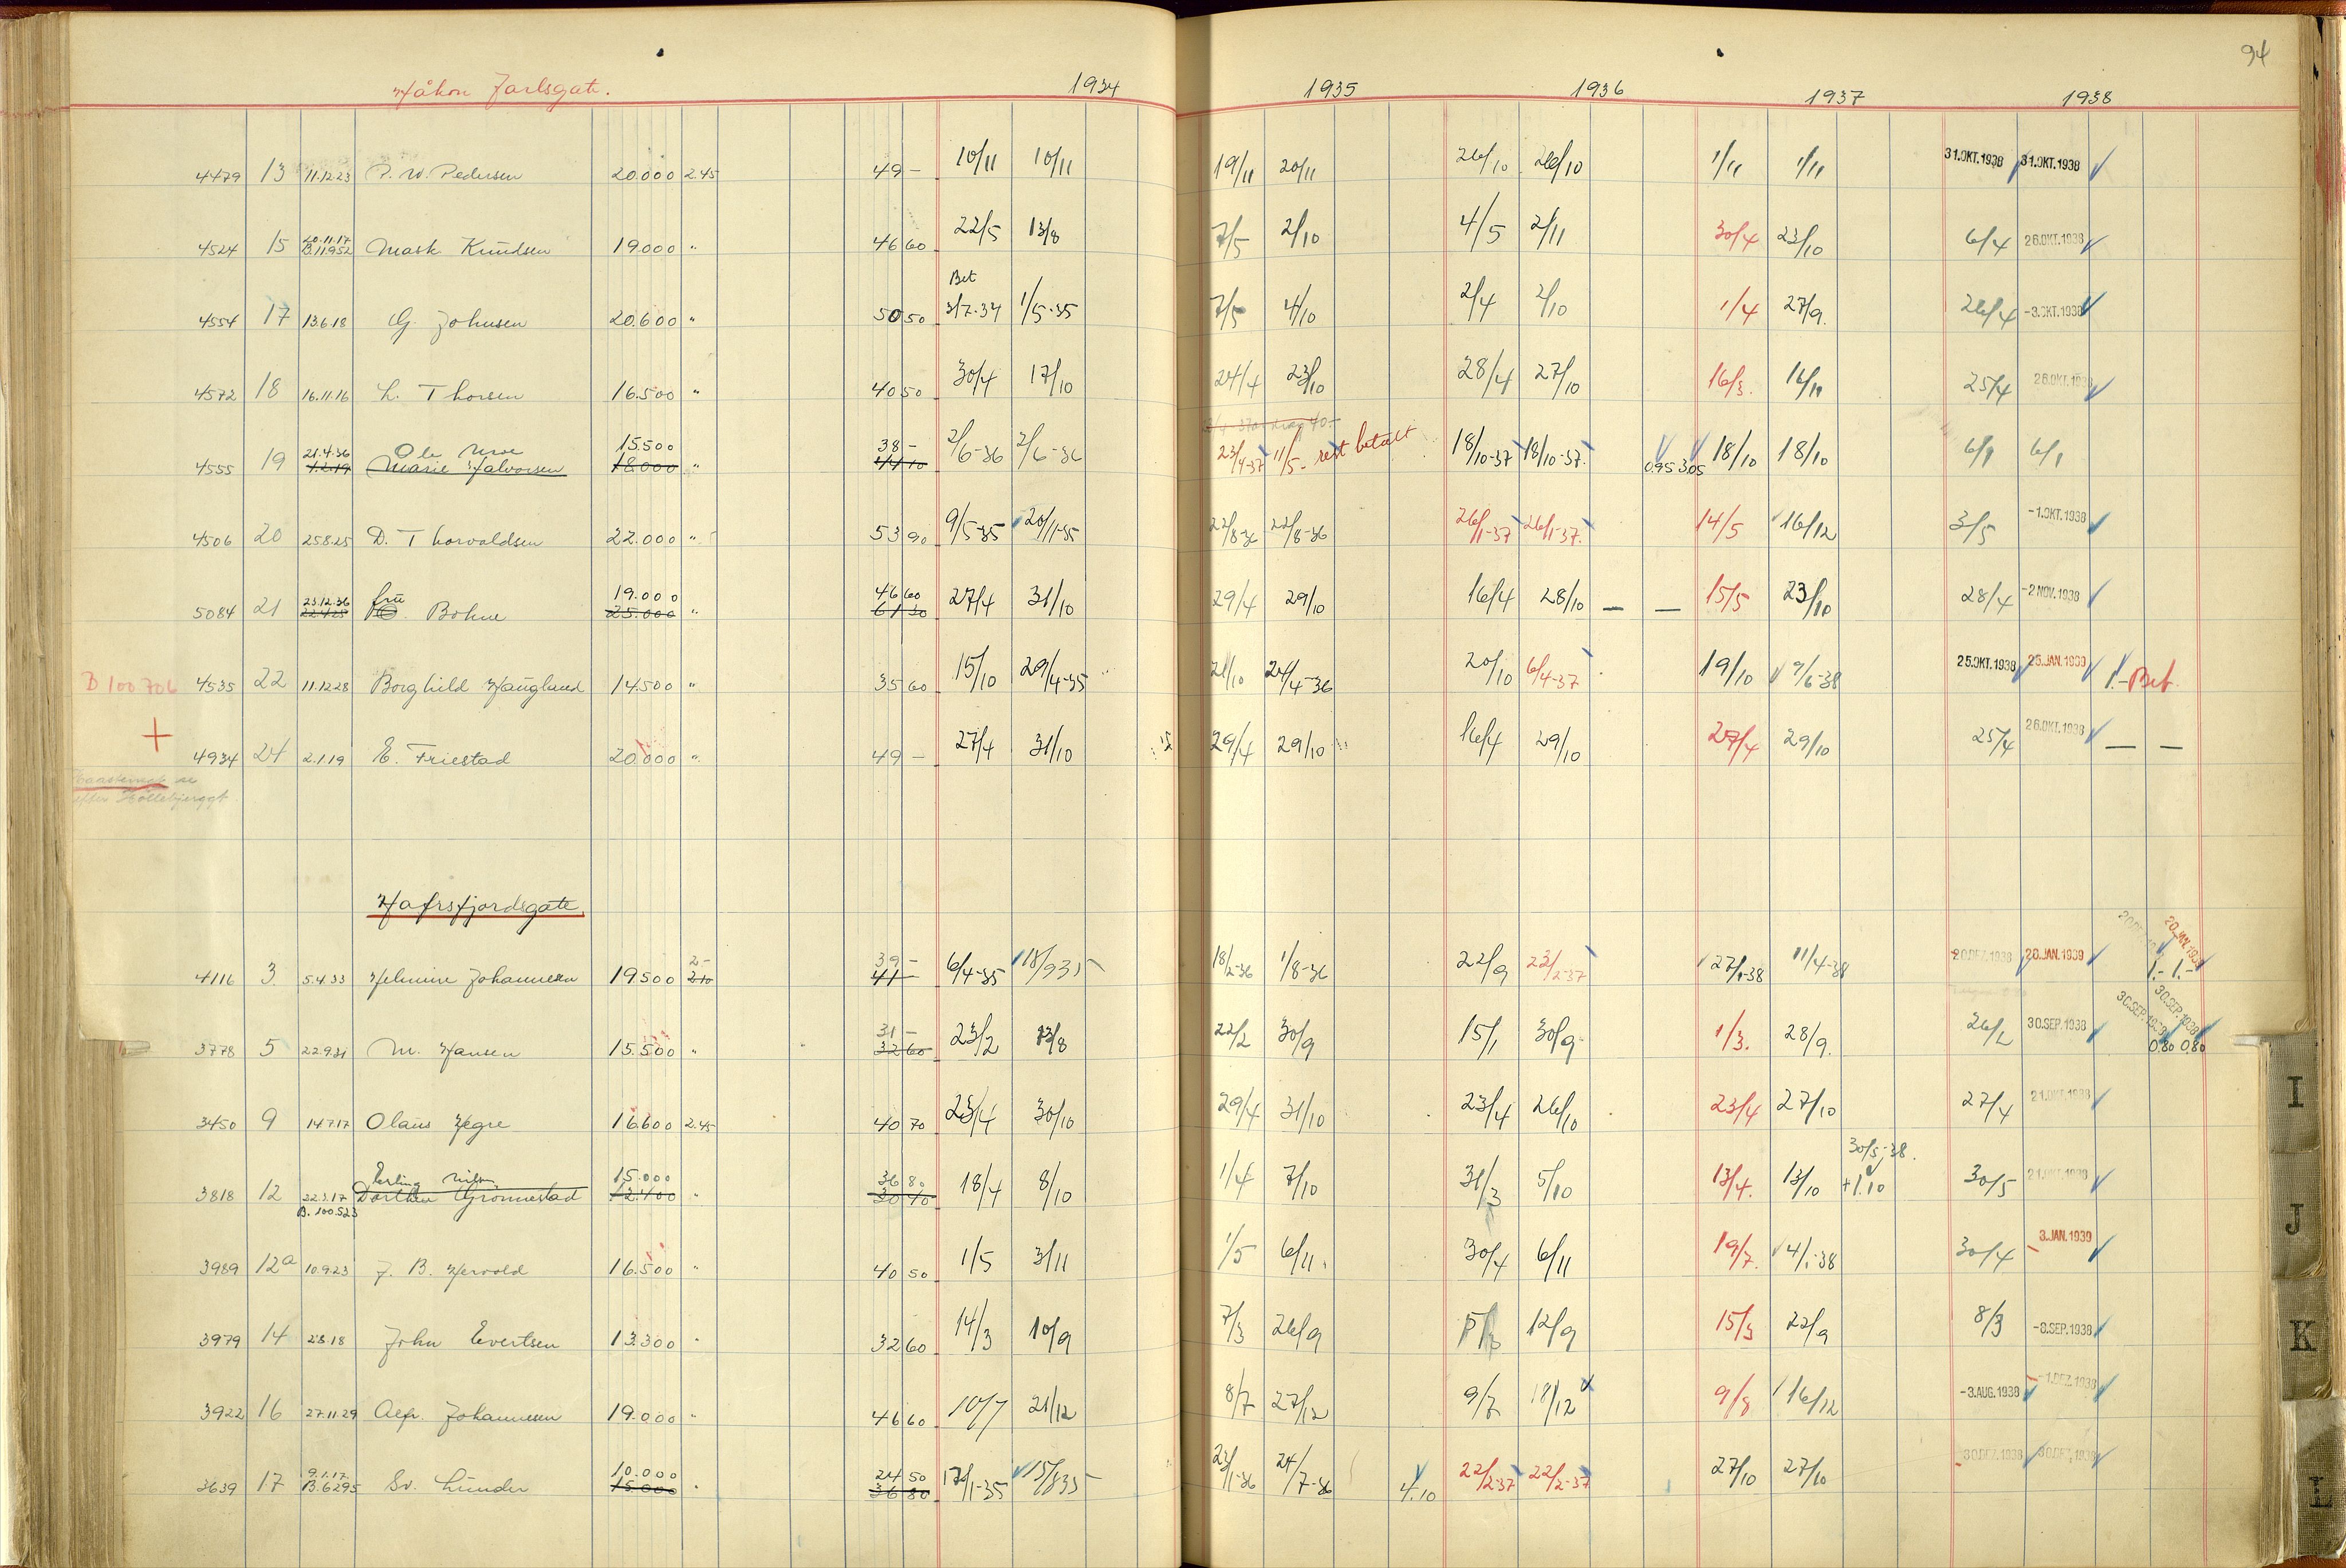 94
Håkon Jarlsgate. 1934 1935 1936 1937 1938
4479 13 11.12.23 P. W. Pedersen 20.000 2.45 49 – 10/11 10/11 19/11 20/11 26/10 26/10 1/11 1/11 31.OKT.1938 31.OKT.1938
20.11.17
4524 15 B.11952 Mask. Knudsen 19.000 " 46 60 22/5 13/8 7/5 2/10 4/5 2/11 30/4 23/10 6/4 26.OKT.1938
Bet
4554 17 13.6.18 G. Johnsen 20.600 " 50 50 3/7-34 1/5-35 7/5 4/10 2/4 2/10 1/4 27/9. 26/4 -3.OKT.1938
4572 18 16.11.16 L. Thorsen 16.500 " 40 50 30/4 17/10 24/4 23/10 28/4 27/10 16/3. 25/4 26.OKT.1938
21.4.36 Ole Moe 15.500 38 –
4555 19 1.2.19 Marie Halvorsen 18.000 " 44 10 2/6-36 2/6-36 23/4-37 11/5- rest betalt 18/10-37 18/10-37. 0.95 3.05 18/10 18/10 6/1
4506 20 25.8.25 D. Thorvaldsen 22.000 " 53 90 9/5-35 20/11-35 22/8-36 22/8-36 26/1-37 26/1-37. 14/5 16/12 3/5 -1.OKT.1938
23.12.36 fru 19.000 46 60
5084 21 Bohne 25.000 " 61 30 27/4 31/10 29/4 29/10 16/4 28/10 — — 15/5 23/10 28/4 -2 NOV.1938
B 100706 4535 22 11.12.28 Borghild Haugland 14.500 " 35 60 15/10 29/4-35 21/10 24/4-36 20/10 6/4-37 19/10 9/6-38 25.OKT.1938 25.JAN.1939 1.- Bet.
+
4934 24 2.1.19 E. Friestad 20.000 " 49 – 27/4 31/10 29/4 29/10 16/4 29/10 27/4 29/10 25/4 26.OKT.1938 — —
Hafrsfjordsgate.
2- 39 –
4116 3 5.4.33 Helmine Johannesen 19.500 2.10 41 – 6/4-35 18/9 35 18/2-36 1/8-36 22/9 23/2-37 27/1-38 11/4-38 20.DEZ.1938 20.JAN.1939 20.JAN.1939 1.- 1.-
31 –
3778 5 22.9.31 M. Hansen 15.500 " 32 60 23/2 13/8 22/2 30/9 15/1 30/9 1/3. 28/9. 26/2 30.SEP.1938 30.SEP.1938 30.SEP.1938 0.80 0.80
3450 9 14.7.17 Olaus Hegre 16.600 2.45 40 70 23/4 30/10 29/4 31/10 23/4 26/10 23/4 27/10 27/4 21.OKT.1938
Erling Nilsen 15.000 36 80 30/5-38.
3818 12 22.3.17 Dorthea Grønnestad 12.400 " 30 40 18/4 8/10 1/4 7/10 31/3 5/10 13/4. 13/10 +1.10 30/5 21.OKT.1938
B. 100.523
3989 12a 10.9.23 J. B. Hervold 16.500 " 40 50 1/5 3/11 1/5 6/11. 30/4 6/11 19/7. 4/1-38 30/4 3.JAN.1939
3979 14 2.8.18 John Evertsen 13.300 " 32 60 14/3 10/9 7/3 26/9 12/9 15/3 22/9 8/3 -8.SEP.1938
3922 16 27.11.29 Alfr. Johannesen 19.000 " 46 60 10/7 21/12 8/7 27/12 9/7 18/12 9/8 16/12 -3.AUG.1938 -1.DEZ.1938
9.1.17 10.000 24 50
3639 17 B.6295 Sv. Lunder 15.000 " 36 80 17/1-35 15/8 35 23/1-36 24/7-36 4.10 22/2-37 22/2-37 27/10 27/10 30.DEZ.1938 30.DEZ.1938
I
J
K
L